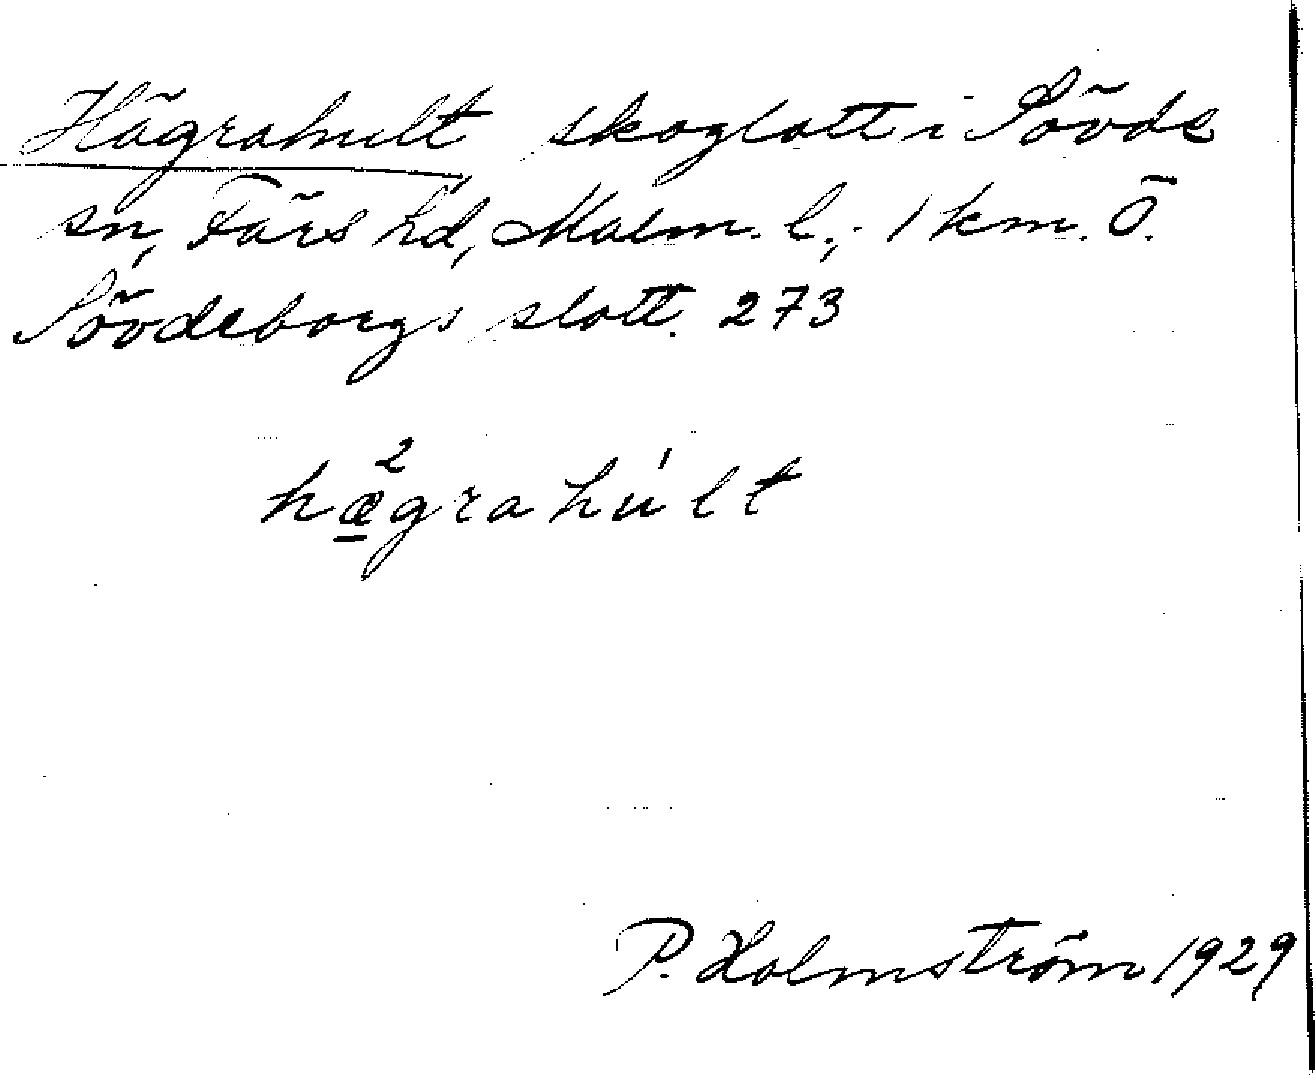 Hägrahult skoglott i Sövds
sn, Färs hd, Malm. l., 1 km. Ö.
Sövdeborgs slott. 273
2
hægrahúlt
P. Holmström 1929